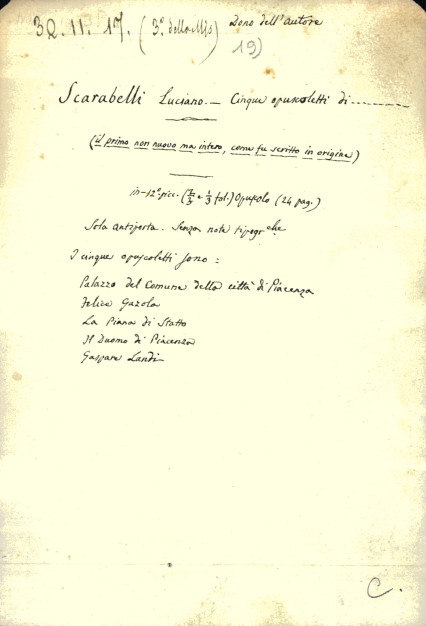 3Q.11.17. (3º della Mis) Dono dell'autore
19)
Scarabelli Luciano. — Cinque opuscoletti di
(il primo non nuovo ma intero, come fu scritto in origine)
in-12º picc. ( e 1/3 fol.) Opuscolo (24 pag.)
Sola antiporta. Senza note tipogr.che
I cinque opuscoletti sono:
Palazzo del Comune della città di Piacenza
Felice Gazola
La Piana di Statto
Il Duomo di Piacenza
Gaspare Landi
C.